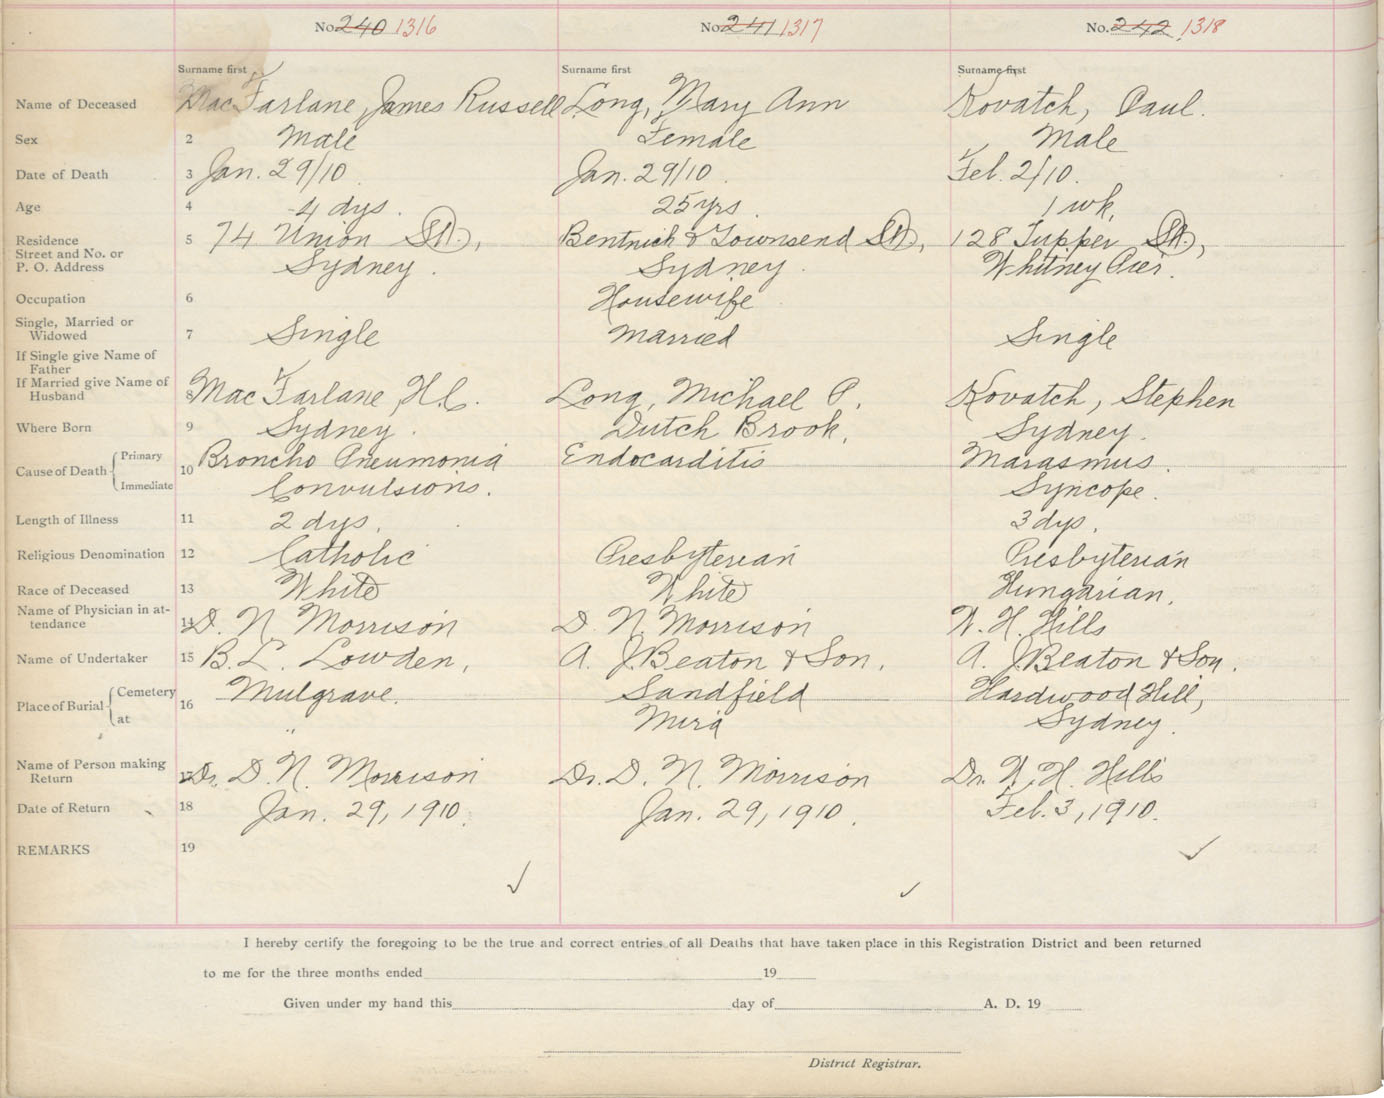 No. 240 1316 No. 241 1317 No. 242 1318
Surname first Surname first Surname first
Name of Deceased MacFarlane, James Russell Long, Mary Ann Kovatch, Paul.
Sex 2 Male Female Male
Date of Death 3 Jan. 29/10 Jan. 29/10. Feb. 2/10.
Age 4 4 dys. 25 yrs. 1 wk.
Residence 5 74 Union St., Bentnick & Townsend St., 128 Tupper St.,
Street and No. or
P. O. Address Sydney. Sydney. Whitney Pier.
Occupation 6 Housewife
Single, Married or
Widowed 7 Single Married Single
If Single give Name of
Father
If Married give Name of
Husband 8 MacFarlane, H.C. Long, Michael P. Kovatch, Stephen
Where Born 9 Sydney. Dutch Brook, Sydney.
Cause of Death Primary 10 Broncho Pneumonia Endocarditis Marasmus.
Immediate Convulsions. Syncope.
Length of Illness 11 2 dys. 3 dys.
Religious Denomination 12 Catholic Presbyterian Presbyterian
Race of Deceased 13 White White Hungarian.
Name of Physician in at-
tendance 14 D. N. Morrison D. N. Morrison W. H. Hills
Name of Undertaker 15 B. L. Lowden, A. J. Beaton & Son. A. J. Beaton & Son.
Place of Burial Cemetery 16 Mulgrave. Sandfield Hardwood Hill,
at " Mira Sydney.
Name of Person making
Return 17 Dr. D. N. Morrison Dr. D. N. Morrison Dr. W. H. Hills
Date of Return 18 Jan. 29, 1910. Jan. 29, 1910. Feb. 3, 1910.
REMARKS 19
I hereby certify the foregoing to be the true and correct entries of all Deaths that have taken place in this Registration District and been returned
to me for the three months ended 19
Given under my hand this day of A. D. 19
District Registrar.